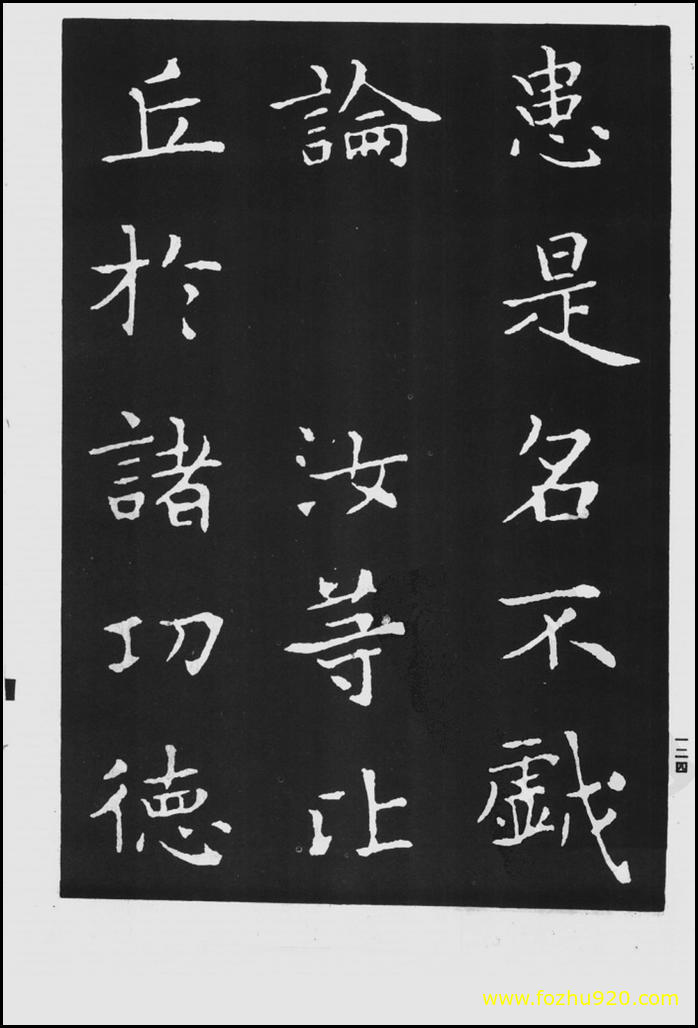 患是名不戯
論 汝等比
丘於諸功徳
一二四
www.fozhu920.com